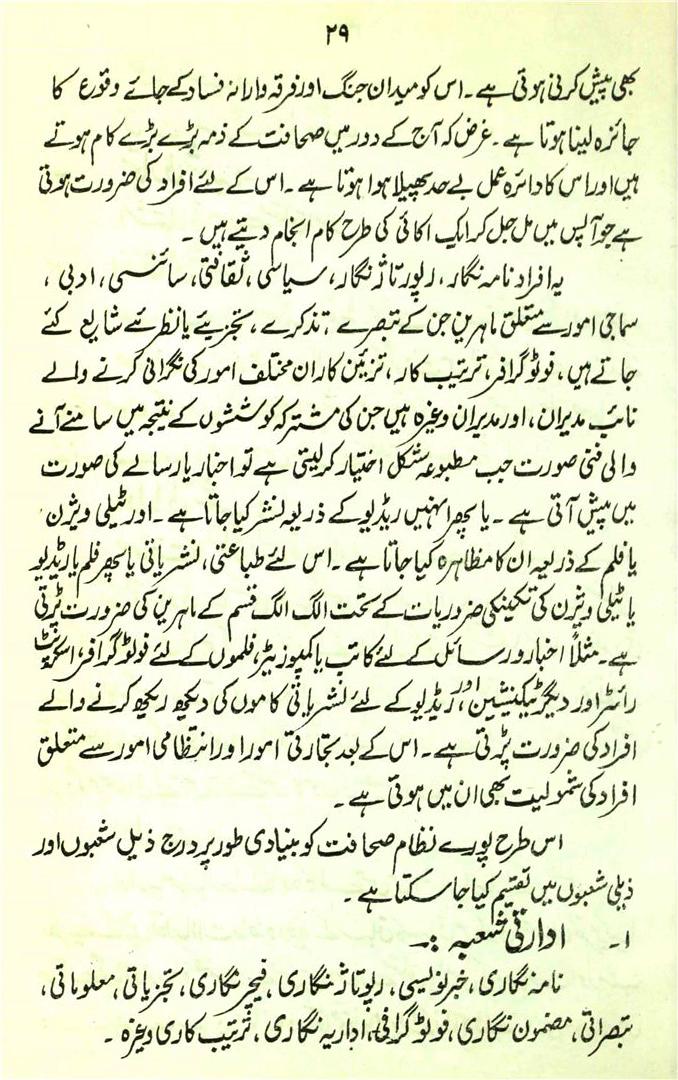 ۲۹
بھی پیش کرنی ہوتی ہے۔ اس کو میدان جنگ اور فرقہ وارانہ فساد کے جائے وقوع کا
جائزہ لینا ہوتا ہے۔ غرض کہ آج کے دور میں صحافت کے ذمہ بڑے بڑے کام ہوتے
ہیں اور اس کا دائرہ عمل بے حد پھیلا ہوا ہوتا ہے۔ اس کے لئے افراد کی ضرورت ہوتی
ہے جو آپس میں مل جل کر ایک اکائی کی طرح کام انجام دیتے ہیں۔
یہ افراد نامہ نگار، رپورتاژ نگار، سیاسی، ثقافتی، سائنسی، ادبی،
سماجی امور سے متعلق ماہرین جن کے تبصرے، تذکرے، تجزیئے یا نظریئے شایع کئے
جاتے ہیں، فوٹو گرافر، ترتیب کار، تزئین کار ان مختلف امور کی نگرانی کرنے والے
نائب مدیران، اور مدیران وغیرہ ہیں جن کی مشترکہ کوششوں کے نتیجہ میں سامنے آنے
والی فنی صورت جب مطبوعہ شکل اختیار کر لیتی ہے تو اخبار یا رسالے کی صورت
میں پیش آتی ہے۔ یا پھر انہیں ریڈیو کے ذریعہ نشر کیا جاتا ہے۔ اور ٹیلی ویژن
یا فلم کے ذریعہ ان کا مظاہرہ کیا جاتا ہے۔ اس لئے طباعتی، نشریاتی یا پھر فلم یا ریڈیو
یا ٹیلی ویژن کی تکنیکی ضروریات کے تحت الگ الگ قسم کے ماہرین کی ضرورت پڑتی
ہے۔ مثلاً اخبار و رسائل کے لئے کاتب یا کمپوزیٹر، فلموں کے لئے فوٹو گرافر، اسکرپٹ
رائٹر اور دیگر ٹیکنیشین اور ریڈیو کے لئے نشریاتی کاموں کی دیکھ ریکھ کرنے والے
افراد کی ضرورت پڑتی ہے۔ اس کے بعد تجارتی امور اور انتظامی امور سے متعلق
افراد کی شمولیت بھی ان میں ہوتی ہے۔
اس طرح پورے نظام صحافت کو بنیادی طور پر درج ذیل شعبوں اور
ذیلی شعبوں میں تقسیم کیا جا سکتا ہے۔
۱۔ ادارتی شعبہ :۔
نامہ نگاری، خبر نویسی، رپوتاژ نگاری، فیچر نگاری، تجزیاتی، معلوماتی،
تبصراتی، مضمون نگاری، فوٹو گرافی، اداریہ نگاری، ترتیب کاری وغیرہ۔